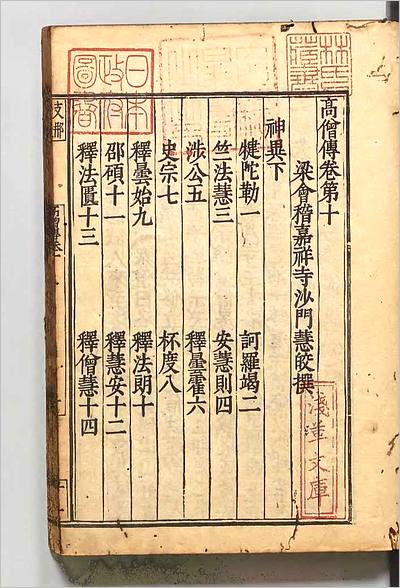 高僧傳卷第十
梁會稽嘉祥寺沙門慧皎撰
神異下
犍陀勒一 訶羅竭二
竺法慧三 安慧則四
涉公五 釋曇霍六
史宗七 杯度八
釋曇始九 釋法朗十
邵碩十一 釋慧安十二
釋法匱十三 釋僧慧十四
支那
日本
政府
圖書
淺草文庫